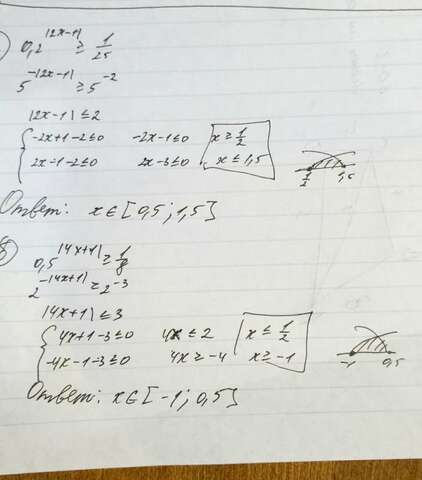 ) 0,2^|2x-1| ≥ 1/25
5^-|2x-1| ≥ 5^-2
|2x-1| ≤ 2
{ -2x+1-2≤0 -2x-1≤0 x ≥ 1/2
2x-1-2≤0 2x-3≤0 x ≤ 1,5
1/2 1,5
Ответ: x∈[0,5; 1,5]
б) 0,5^|4x+1| ≥ 1/8
2^-|4x+1| ≥ 2^-3
|4x+1| ≤ 3
{ 4x+1-3≤0 4x ≤ 2 x ≤ 1/2
-4x-1-3≤0 4x ≥ -4 x ≥ -1
-1 0,5
Ответ: x∈[-1; 0,5]